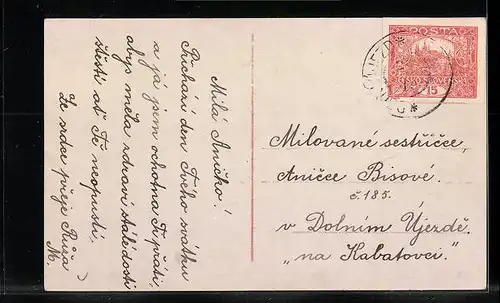 Milá Aničko!
Přichází den Tvého svátku
a já jsem ochotna Ti přáti,
abys měla zdraví stálé dosti
štěstí ať Tě neopustí.
Ze srdce přeje Růža
M.
POŠTA
15
Milované sestřičce
Aničce Bisové
č. 185.
v Dolním Újezdě
"na Kabatovci"